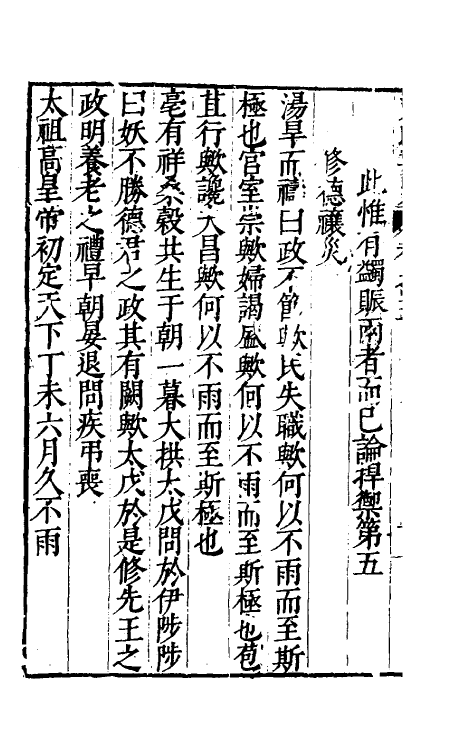 此惟有蠲賑兩者而已論捍禦第五
修德禳災
湯旱而禱曰政不節歟民失職歟何以不雨而至斯
極也宮室崇歟婦謁盛歟何以不雨而至斯極也苞
苴行歟讒夫昌歟何以不雨而至斯極也
亳有祥桑穀共生于朝一暮大拱太戊問於伊陟陟
曰妖不勝德君之政其有闕歟太戊於是修先王之
政明養老之禮早朝晏退問疾弔喪
太祖高皇帝初定天下丁未六月久不雨